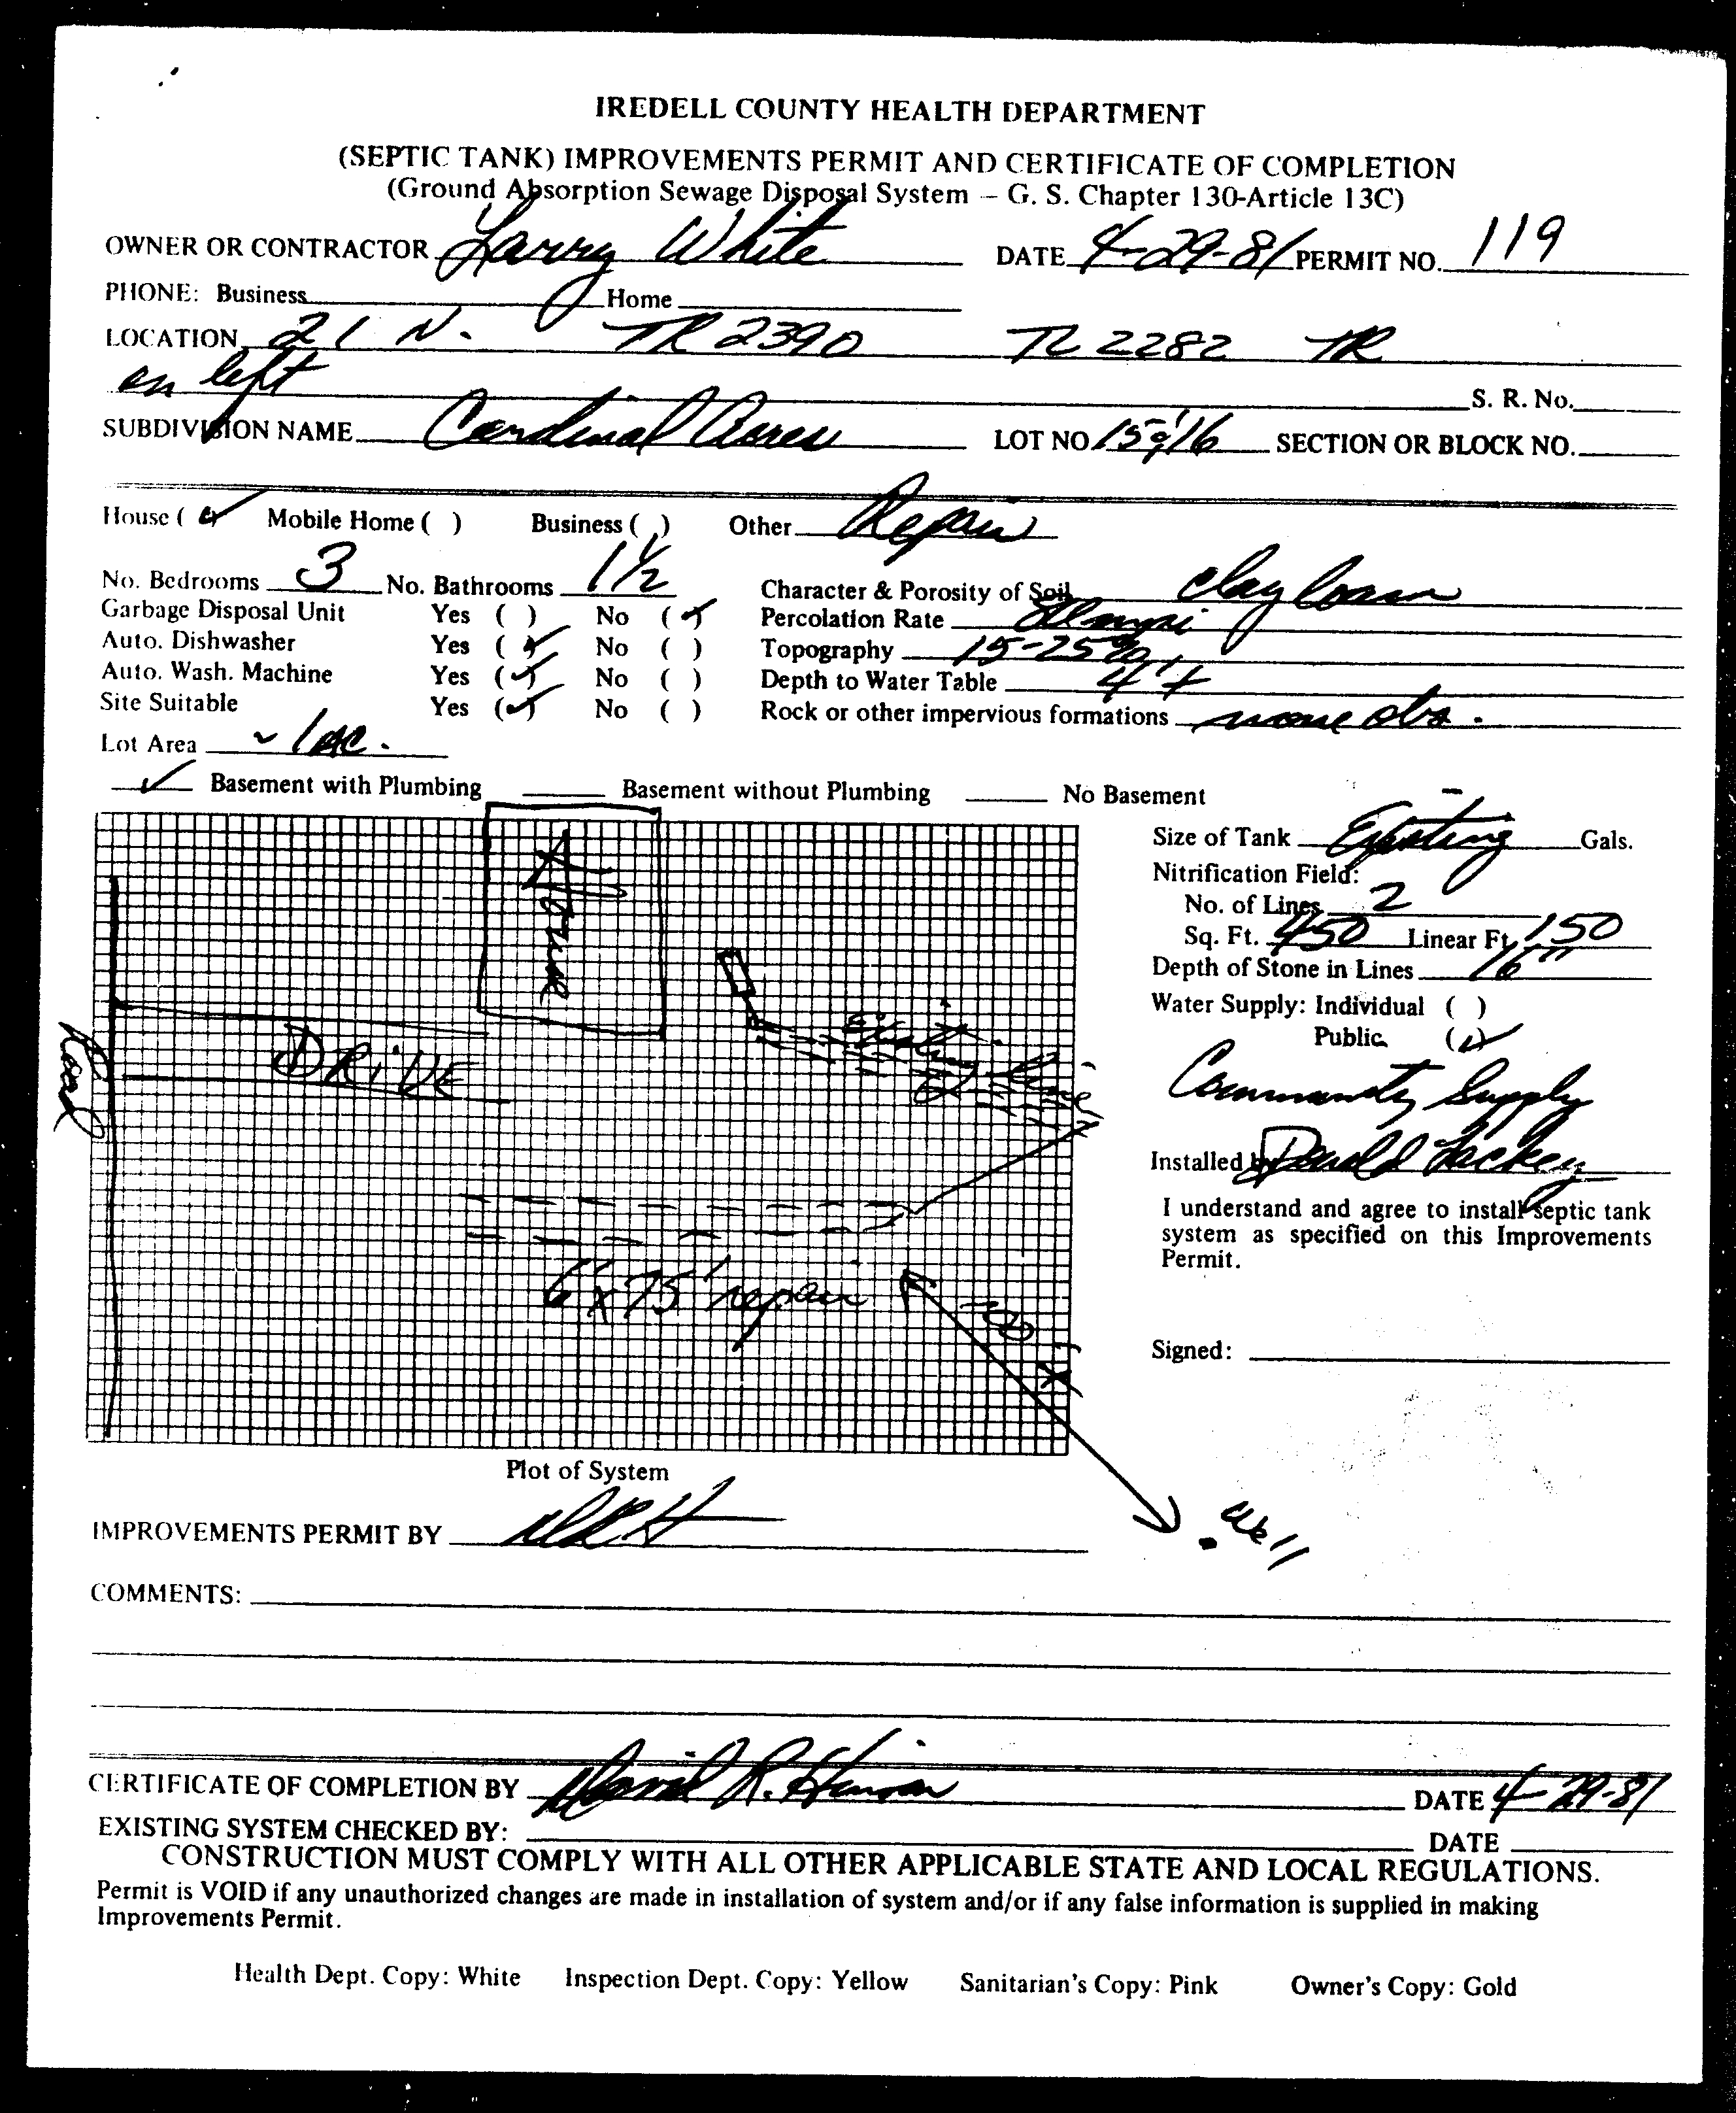 IREDELL COUNTY HEALTH DEPARTMENT
(SEPTIC TANK) IMPROVEMENTS PERMIT AND CERTIFICATE OF COMPLETION
(Ground Absorption Sewage Disposal System – G. S. Chapter 130-Article 13C)
OWNER OR CONTRACTOR Larry White DATE 4-29-81 PERMIT NO. 119
PHONE: Business Home
LOCATION 21 N. TR 2390 TL 2282 TR
on left
S. R. No.
SUBDIVISION NAME Cardinal Acres LOT NO 15 & 16 SECTION OR BLOCK NO.
House (✓) Mobile Home ( ) Business ( ) Other Repair
No. Bedrooms 3 No. Bathrooms 1 1/2 Character & Porosity of Soil clay loam
Garbage Disposal Unit Yes ( ) No (✓) Percolation Rate
Auto. Dishwasher Yes (✓) No ( ) Topography 15-25%
Auto. Wash. Machine Yes (✓) No ( ) Depth to Water Table 4'+
Site Suitable Yes (✓) No ( ) Rock or other impervious formations none obs.
Lot Area ~ 1 ac.
✓ Basement with Plumbing Basement without Plumbing No Basement
House
Road
DRIVE
Existing lines
6' x 75' repair
Well
Size of Tank Existing Gals.
Nitrification Field:
No. of Lines 2
Sq. Ft. 450 Linear Ft. 150
Depth of Stone in Lines 16"
Water Supply: Individual ( )
Public (✓)
Community Supply
Installed by Donald Lackey
I understand and agree to install septic tank
system as specified on this Improvements
Permit.
Signed:
Plot of System
IMPROVEMENTS PERMIT BY DRH
COMMENTS:
CERTIFICATE OF COMPLETION BY David R. DATE 4-29-81
EXISTING SYSTEM CHECKED BY: DATE
CONSTRUCTION MUST COMPLY WITH ALL OTHER APPLICABLE STATE AND LOCAL REGULATIONS.
Permit is VOID if any unauthorized changes are made in installation of system and/or if any false information is supplied in making
Improvements Permit.
Health Dept. Copy: White Inspection Dept. Copy: Yellow Sanitarian's Copy: Pink Owner's Copy: Gold